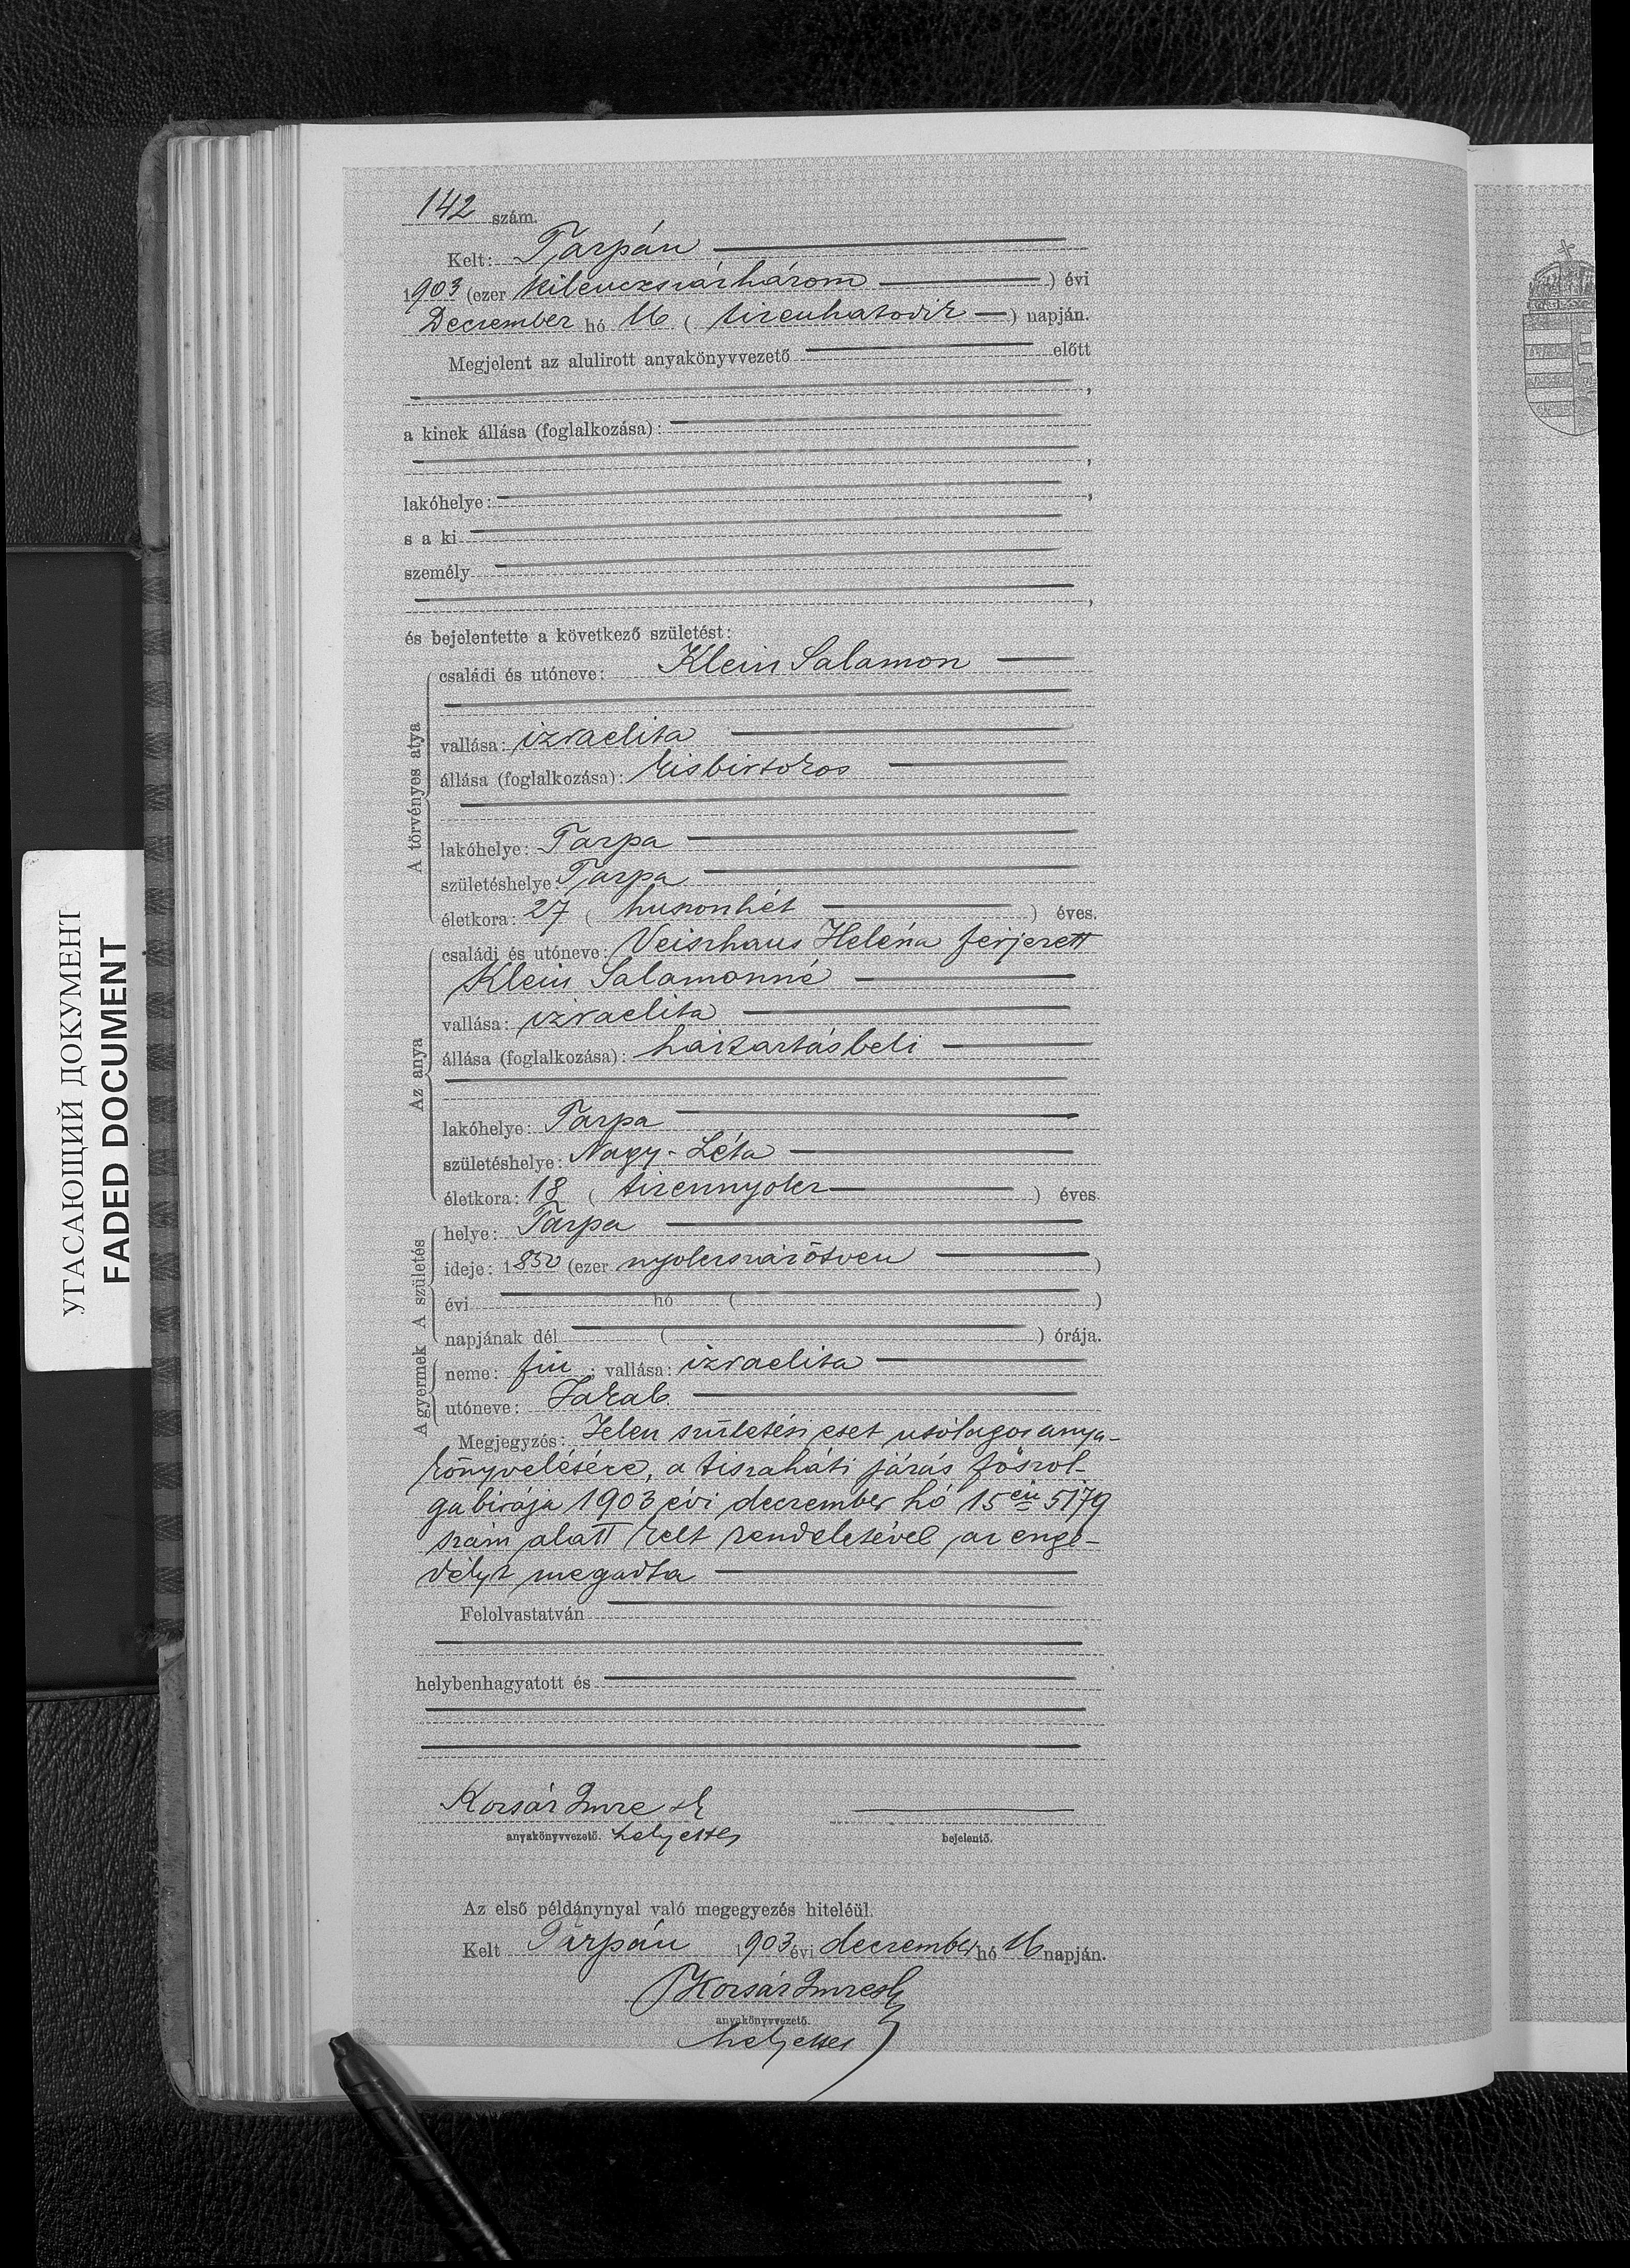 142 szám.
Kelt: Tarpán
1903 (ezer kilenczszázhárom) évi
Deczember hó 16 (tizenhatodik) napján.
Megjelent az alulirott anyakönyvvezető előtt
,
a kinek állása (foglalkozása):
,
lakóhelye: ,
s a ki
személy
,
és bejelentette a következő születést:
A törvényes atya
családi és utóneve: Klein Salamon
vallása: izraelita
állása (foglalkozása): kisbirtokos
lakóhelye: Tarpa
születéshelye: Tarpa
életkora: 27 (huszonhét) éves.
Az anya
családi és utóneve: Veiszhaus Heléna férjezett
Klein Salamonné
vallása: izraelita
állása (foglalkozása): háztartásbeli
lakóhelye: Tarpa
születéshelye: Nagy-Léta
életkora: 18 (tizennyolcz) éves.
A születés
helye: Tarpa
ideje: 1850 (ezer nyolczszázötven)
évi hó ( )
napjának dél ( ) órája.
A gyermek
neme: fiú; vallása: izraelita
utóneve: Jakab.
Megjegyzés: Jelen születési eset utólagos anya-
könyvelésére, a tiszaháti járás főszol-
gabirája 1903 évi deczember hó 15én 5179
szám alatt kelt rendeletével az enge-
délyt megadta
Felolvastatván
helybenhagyatott és
Korsár Imre sk
anyakönyvvezető. helyettes
bejelentő.
Az első példánynyal való megegyezés hiteléül.
Kelt Tarpán 1903 évi deczember hó 16 napján.
Korsár Imre sk
anyakönyvvezető.
helyettes
УГАСАЮЩИЙ ДОКУМЕНТ
FADED DOCUMENT